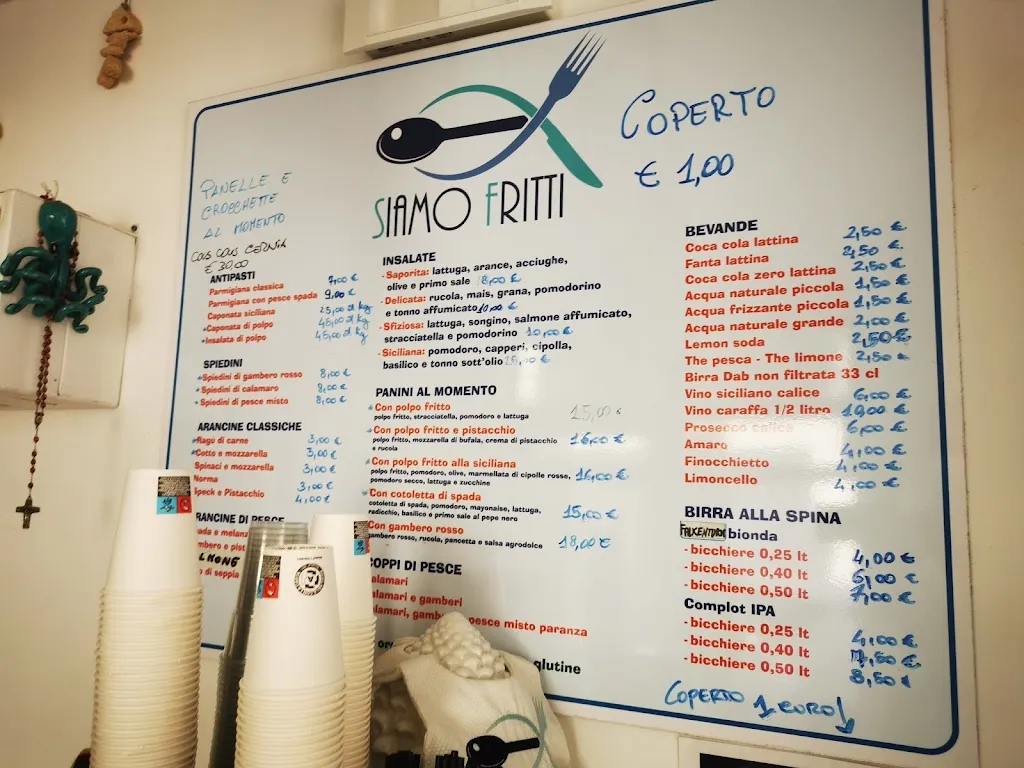 SIAMO FRITTI
COPERTO
€ 1,00
PANELLE E
CROCCHETTE
AL MOMENTO
COUS COUS CERNIA
€ 30,00
ANTIPASTI
Parmigiana classica 7,00 €
Parmigiana con pesce spada 9,00 €
Caponata siciliana 25,00 al kg
Caponata di polpo 45,00 al kg
Insalata di polpo 45,00 al kg
SPIEDINI
Spiedini di gambero rosso 8,00 €
Spiedini di calamaro 8,00 €
Spiedini di pesce misto 8,00 €
ARANCINE CLASSICHE
Ragu di carne 3,00 €
Cotto e mozzarella 3,00 €
Spinaci e mozzarella 3,00 €
Norma 3,00 €
Speck e Pistacchio 4,00 €
RANCINE DI PESCE
INSALATE
- Saporita: lattuga, arance, acciughe,
olive e primo sale 8,00 €
- Delicata: rucola, mais, grana, pomodorino
e tonno affumicato 10,00 €
- Sfiziosa: lattuga, songino, salmone affumicato,
stracciatella e pomodorino 10,00 €
- Siciliana: pomodoro, capperi, cipolla,
basilico e tonno sott'olio
PANINI AL MOMENTO
Con polpo fritto
polpo fritto, stracciatella, pomodoro e lattuga 15,00 €
Con polpo fritto e pistacchio
polpo fritto, mozzarella di bufala, crema di pistacchio
e rucola 16,00 €
Con polpo fritto alla siciliana
polpo fritto, pomodoro, olive, marmellata di cipolle rosse,
pomodoro secco, lattuga e zucchine 16,00 €
Con cotoletta di spada
cotoletta di spada, pomodoro, mayonaise, lattuga,
radicchio, basilico e primo sale al pepe nero 15,00 €
Con gambero rosso
gambero rosso, rucola, pancetta e salsa agrodolce 18,00 €
COPPI DI PESCE
alamari
alamari e gamberi
alamari, gamberi pesce misto paranza
glutine
BEVANDE
Coca cola lattina 2,50 €
Fanta lattina 2,50
Coca cola zero lattina 2,50 €
Acqua naturale piccola 1,50 €
Acqua frizzante piccola 1,50 €
Acqua naturale grande 2,00 €
Lemon soda 2,50 €
The pesca - The limone 2,50 €
Birra Dab non filtrata 33 cl
Vino siciliano calice 6,00 €
Vino caraffa 1/2 litro 10,00 €
Prosecco calice 6,00 €
Amaro 4,00 €
Finocchietto 4,00 €
Limoncello 4,00 €
BIRRA ALLA SPINA
bionda
- bicchiere 0,25 lt 4,00 €
- bicchiere 0,40 lt 6,00 €
- bicchiere 0,50 lt 7,00 €
Complot IPA
- bicchiere 0,25 lt 4,00 €
- bicchiere 0,40 lt 7,50 €
- bicchiere 0,50 lt 8,50 €
COPERTO 1 EURO!